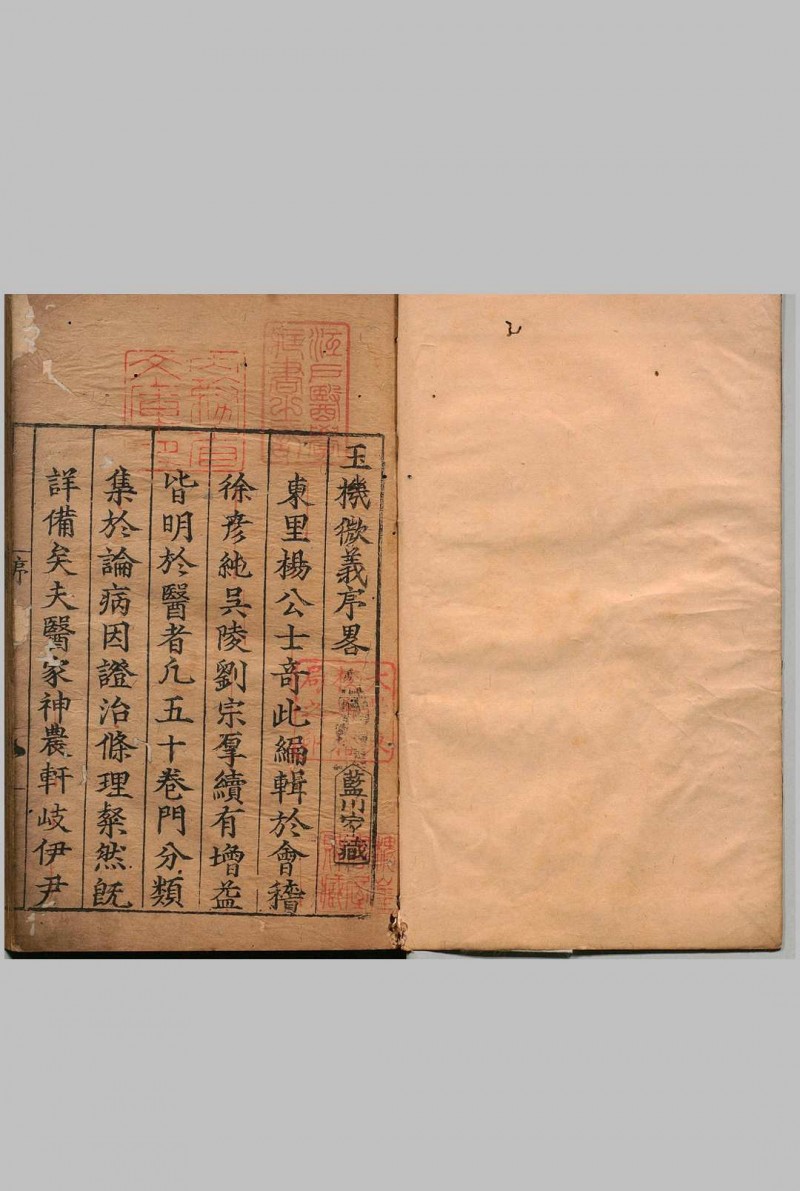 玉機微義序畧
東里楊公士竒此編輯於會稽
徐彦純吳陵劉宗厚續有增益
皆明於醫者凢五十卷門分類
集於論病因證治條理粲然旣
詳備矣夫醫家神農軒岐伊尹
序
藍川家藏